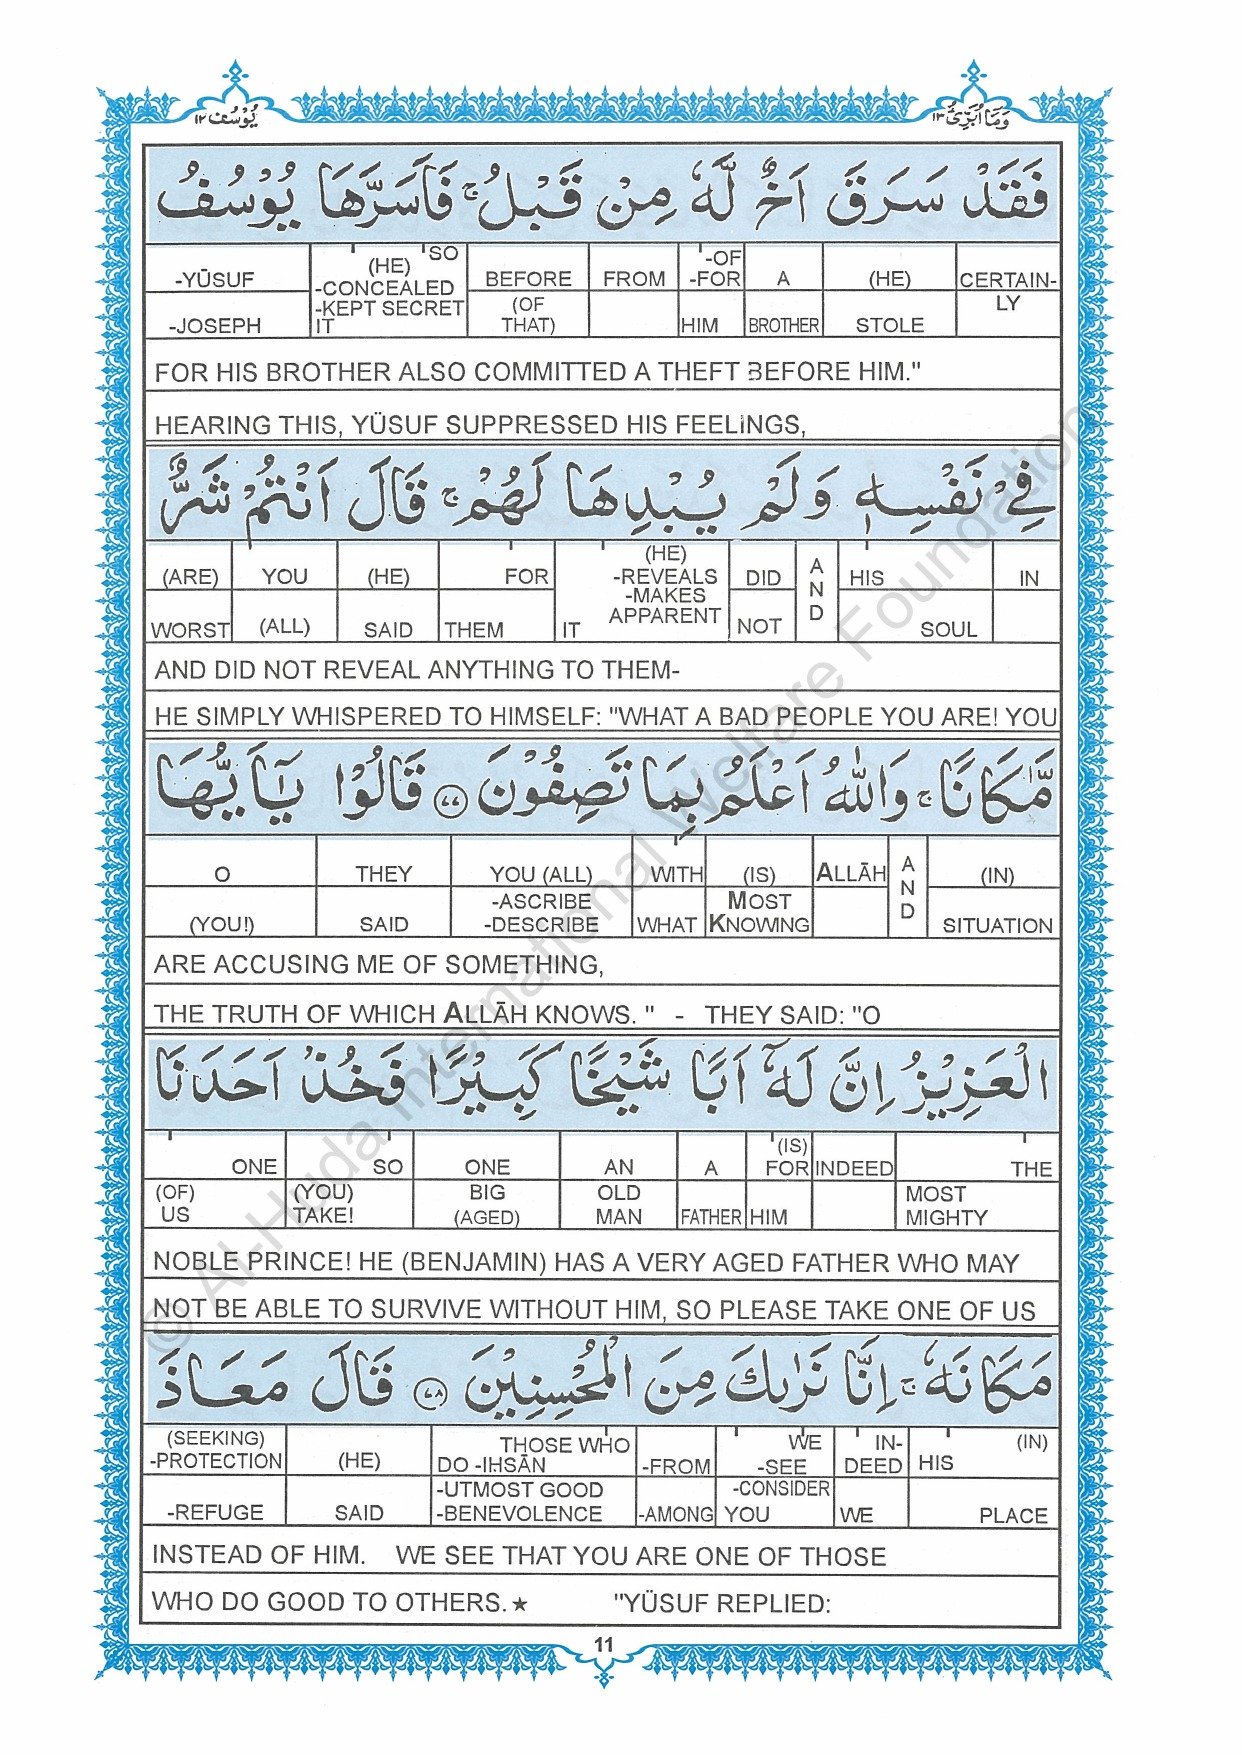 وَمَآ اُبَرِّئُ ١٣
يُوْسُف ١٢
فَقَدْ سَرَقَ اَخٌ لَّهٗ مِنْ قَبْلُ ۚ فَاَسَرَّهَا يُوْسُفُ
CERTAIN-LY (HE) STOLE A BROTHER -OF -FOR HIM FROM BEFORE (OF THAT) SO (HE) -CONCEALED -KEPT SECRET IT -YŪSUF -JOSEPH
FOR HIS BROTHER ALSO COMMITTED A THEFT BEFORE HIM."
HEARING THIS, YÜSUF SUPPRESSED HIS FEELINGS,
فِيْ نَفْسِهٖ وَلَمْ يُبْدِهَا لَهُمْ ۚ قَالَ اَنْتُمْ شَرٌّ
IN HIS SOUL AND DID NOT (HE) -REVEALS -MAKES APPARENT IT FOR THEM (HE) SAID YOU (ALL) (ARE) WORST
AND DID NOT REVEAL ANYTHING TO THEM-
HE SIMPLY WHISPERED TO HIMSELF: "WHAT A BAD PEOPLE YOU ARE! YOU
مَّكَانًا ۚ وَاللّٰهُ اَعْلَمُ بِمَا تَصِفُوْنَ ۝٧٧ قَالُوْا يٰٓاَيُّهَا
(IN) SITUATION AND ALLĀH (IS) MOST KNOWING WITH WHAT YOU (ALL) -ASCRIBE -DESCRIBE THEY SAID O (YOU!)
ARE ACCUSING ME OF SOMETHING,
THE TRUTH OF WHICH ALLĀH KNOWS. " - THEY SAID: "O
الْعَزِيْزُ اِنَّ لَهٗٓ اَبًا شَيْخًا كَبِيْرًا فَخُذْ اَحَدَنَا
THE MOST MIGHTY INDEED (IS) FOR HIM A FATHER AN OLD MAN ONE BIG (AGED) SO (YOU) TAKE! ONE (OF) US
NOBLE PRINCE! HE (BENJAMIN) HAS A VERY AGED FATHER WHO MAY
NOT BE ABLE TO SURVIVE WITHOUT HIM, SO PLEASE TAKE ONE OF US
مَكَانَهٗ ۚ اِنَّا نَرٰىكَ مِنَ الْمُحْسِنِيْنَ ۝٧٨ قَالَ مَعَاذَ
(IN) HIS PLACE IN-DEED WE WE -SEE -CONSIDER YOU -FROM -AMONG THOSE WHO DO -IHSĀN -UTMOST GOOD -BENEVOLENCE (HE) SAID (SEEKING) -PROTECTION -REFUGE
INSTEAD OF HIM. WE SEE THAT YOU ARE ONE OF THOSE
WHO DO GOOD TO OTHERS.★ "YÜSUF REPLIED:
11
© Al-Huda International Welfare Foundation